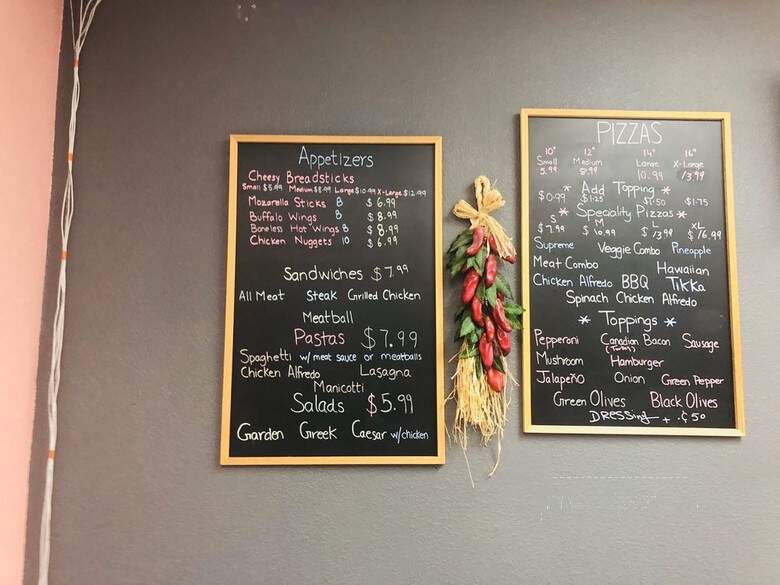 Appetizers
Cheesy Breadsticks
Small $5.99 Medium $8.99 Large $10.99 X-Large $12.99
Mozarella Sticks 8 $6.99
Buffalo Wings 8 $8.99
Boneless Hot Wings 8 $8.99
Chicken Nuggets 10 $6.99
Sandwiches $7.99
All Meat Steak Grilled Chicken
Meatball
Pastas $7.99
Spaghetti w/ meat sauce or meatballs
Chicken Alfredo Lasagna
Manicotti
Salads $5.99
Garden Greek Caesar w/chicken
PIZZAS
10" 12" 14" 16"
Small Medium Large X-Large
5.99 8.99 10.99 13.99
* Add Topping *
$0.99 $1.25 $1.50 $1.75
* Speciality Pizzas *
S M L XL
$7.99 $10.99 $13.99 $16.99
Supreme Veggie Combo Pineapple
Meat Combo Hawaiian
Chicken Alfredo BBQ Tikka
Spinach Chicken Alfredo
* Toppings *
Pepperoni Canadian Bacon Sausage
(Turkey)
Mushroom Hamburger
Jalapeño Onion Green Pepper
Green Olives Black Olives
DRESSing + .50